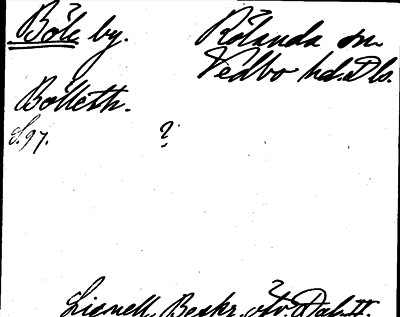 Böle by. Rölanda sn.
Vedbo hd. Dls.
Bölleth.
S. 97. ?
Lignell, Beskr. öfv. Dal II.